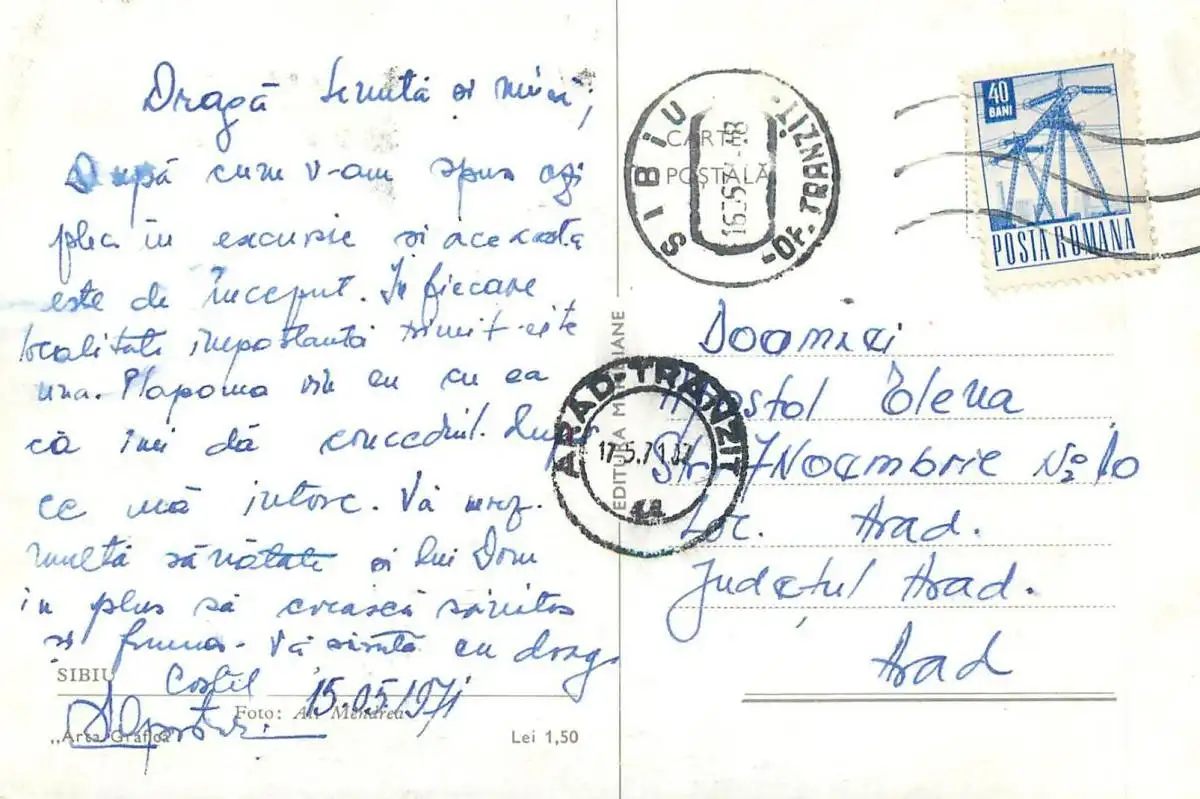 Dragă și
După cum v-am spus azi
plec în excursie și aceasta
este de început. În fiecare
localitate importantă trimit
una. Plapoma vin eu cu ea
că îmi dă concediul. După
ce mă întorc. Vă urez.
multă sănătate și lui Dom
în plus să crească
și frumos. Vă sărută cu drag
Costel 15.05/1971
SIBIU
Foto: A.
„Arta Grafică”
Lei 1,50
EDITURA MERIDIANE
CARTE
POȘTALĂ
SIBIU
-OF. TRANZIT.
40
BANI
POSTA ROMANA
ARAD-TRANZIT
17.5.71
Doamnei
Apostol Elena
Str. 7 Noembrie No 10
Loc. Arad.
Județul Arad.
Arad